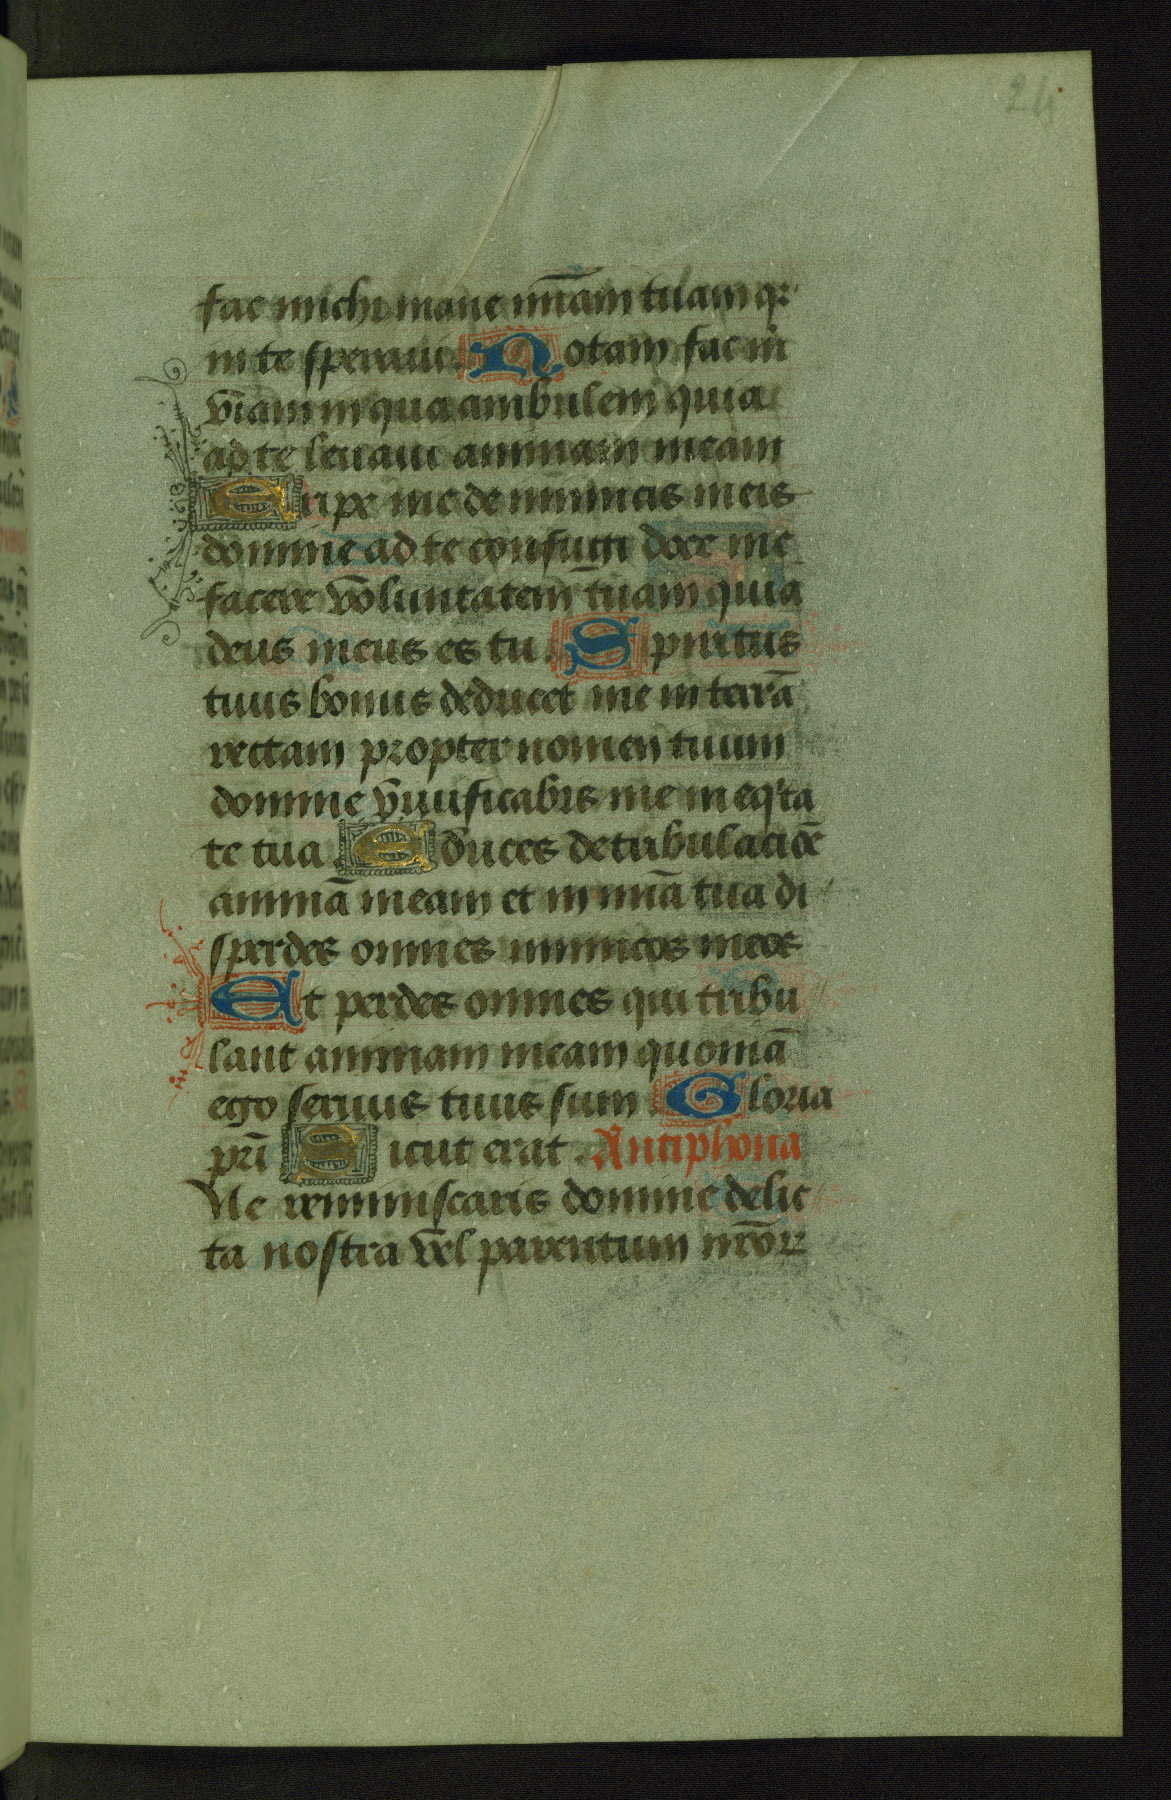 24
fac michi mane mīam tuam qꝛ
in te speraui. Notam fac m̄
viam in qua ambulem quia
ad te leuaui animam meam
Eripe me de inimicis meis
domine ad te confugi doce me
facere voluntatem tuam quia
deus meus es tu. Spiritus
tuus bonus deducet me in terrā
rectam propter nomen tuum
domine viuificabis me in eq'ta
te tua. Educes de tribulacioē
animā meam et in mīa tua di
sperdes omnes inimicos meos
Et perdes omnes qui tribu
lant animam meam quoniā
ego seruus tuus sum. Gloria
pri Sicut erat. Antiphona
Ne reminiscaris domine delic
ta nostra vel parentum nroꝝ